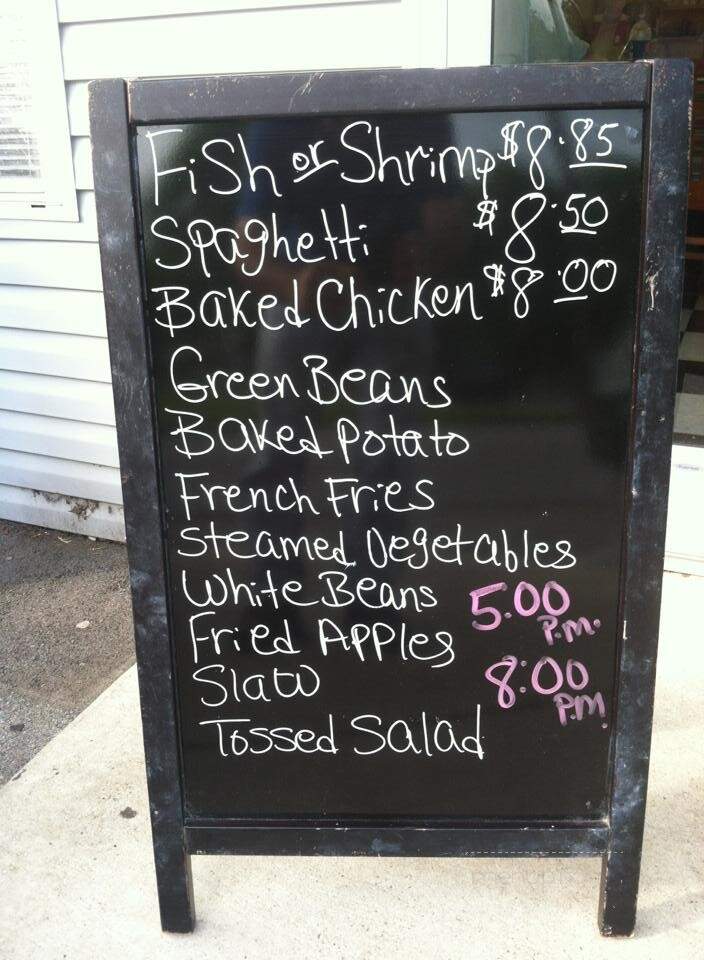 Fish or Shrimp $8.85
Spaghetti $8.50
Baked Chicken $8.00
Green Beans
Baked Potato
French Fries
Steamed Vegetables
White Beans 5:00
Fried Apples P.m.
Slaw 8:00
P.M
Tossed Salad